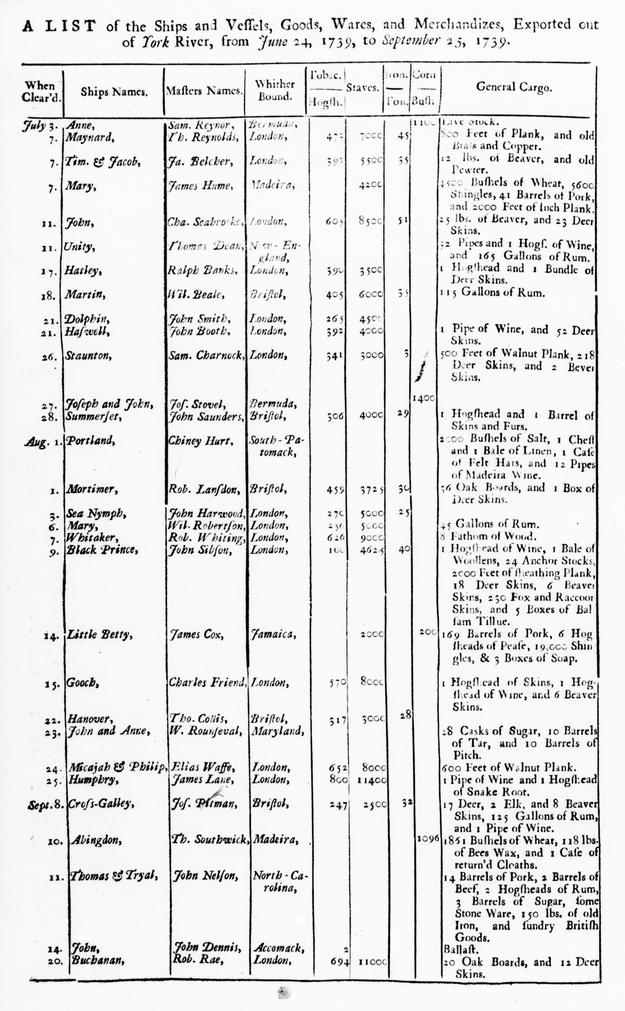 A LIST of the Ships and Veſſels, Goods, Wares, and Merchandizes, Exported out
of York River, from June 24, 1739, to September 25, 1739.
When Clear'd. Ships Names. Maſters Names. Whither Bound. Tobac. Hogſh. Staves. Iron. Ton. Corn Buſh. General Cargo.
July 3. Anne, Sam. Reynor, Bermuda, 1100 Live Stock.
7. Maynard, Th. Reynolds, London, 7000 45 800 Feet of Plank, and old
Braſs and Copper.
7. Tim. & Jacob, Ja. Belcher, London, 5500 35 12 lbs. of Beaver, and old
Pewter.
7. Mary, James Hume, Madeira, 4200 4500 Buſhels of Wheat, 5600
Shingles, 41 Barrels of Pork,
and 2000 Feet of Inch Plank.
11. John, Cha. Seabrooke, London, 605 8500 51 25 lbs. of Beaver, and 23 Deer
Skins.
11. Unity, Thomas Dean, New-En-
gland, Pipes and 1 Hogſ. of Wine,
and 165 Gallons of Rum.
17. Harley, Ralph Banks, London, 390 3500 1 Hogſhead and 1 Bundle of
Deer Skins.
18. Martin, Wil. Beale, Briſtol, 405 6000 35 115 Gallons of Rum.
21. Dolphin, John Smith, London, 265 4500
21. Haſwell, John Booth, London, 392 4000 1 Pipe of Wine, and 52 Deer
Skins.
26. Staunton, Sam. Charnock, London, 341 3000 3 500 Feet of Walnut Plank, 218
Deer Skins, and 2 Bever
Skins.
27. Joſeph and John, Joſ. Stovel, Bermuda, 1400
28. Summerſet, John Saunders, Briſtol, 306 4000 29 1 Hogſhead and 1 Barrel of
Skins and Furs.
Aug. 1. Portland, Chiney Hurt, South-Pa-
tomack, Buſhels of Salt, 1 Cheſt
and 1 Bale of Linen, 1 Caſe
of Felt Hats, and 12 Pipes
of Madeira Wine.
1. Mortimer, Rob. Lanſdon, Briſtol, 459 3725 30 36 Oak Boards, and 1 Box of
Deer Skins.
3. Sea Nymph, John Harwood, London, 270 5000 25
6. Mary, Wil. Robertſon, London, 5000 45 Gallons of Rum.
7. Whitaker, Rob. Whiting, London, 626 9000 8 Fathom of Wood.
9. Black Prince, John Sibſon, London, 100 4625 40 1 Hogſhead of Wine, 1 Bale of
Woollens, 24 Anchor Stocks,
2000 Feet of ſheathing Plank,
18 Deer Skins, 6 Beaver
Skins, 230 Fox and Raccoon
Skins, and 5 Boxes of Bal
ſam Tillue.
14. Little Betty, James Cox, Jamaica, 2000 200 169 Barrels of Pork, 6 Hog
ſheads of Peaſe, 19,000 Shin
gles, & 3 Boxes of Soap.
15. Gooch, Charles Friend, London, 570 8000 1 Hogſhead of Skins, 1 Hog-
ſhead of Wine, and 6 Beaver
Skins.
22. Hanover, Tho. Collis, Briſtol, 317 3000 28
23. John and Anne, W. Rounſeval, Maryland, 28 Casks of Sugar, 10 Barrels
of Tar, and 10 Barrels of
Pitch.
24. Micajah & Philip, Elias Waffe, London, 652 8000 600 Feet of Walnut Plank.
25. Humphry, James Lane, London, 800 11400 1 Pipe of Wine and 1 Hogſhead
of Snake Root.
Sept. 8. Croſs-Galley, Joſ. Pitman, Briſtol, 247 2500 32 17 Deer, 2 Elk, and 8 Beaver
Skins, 125 Gallons of Rum,
and 1 Pipe of Wine.
10. Abingdon, Th. Southwick, Madeira, 1096 1861 Buſhels of Wheat, 118 lbs.
of Bees Wax, and 1 Caſe of
return'd Cloaths.
11. Thomas & Tryal, John Nelſon, North-Ca-
rolina, 14 Barrels of Pork, 2 Barrels of
Beef, 2 Hogſheads of Rum,
3 Barrels of Sugar, ſome
Stone Ware, 150 lbs. of old
Iron, and ſundry Britiſh
Goods.
14. John, John Dennis, Accomack, 2 Ballaſt.
20. Buchanan, Rob. Rae, London, 694 11000 20 Oak Boards, and 12 Deer
Skins.